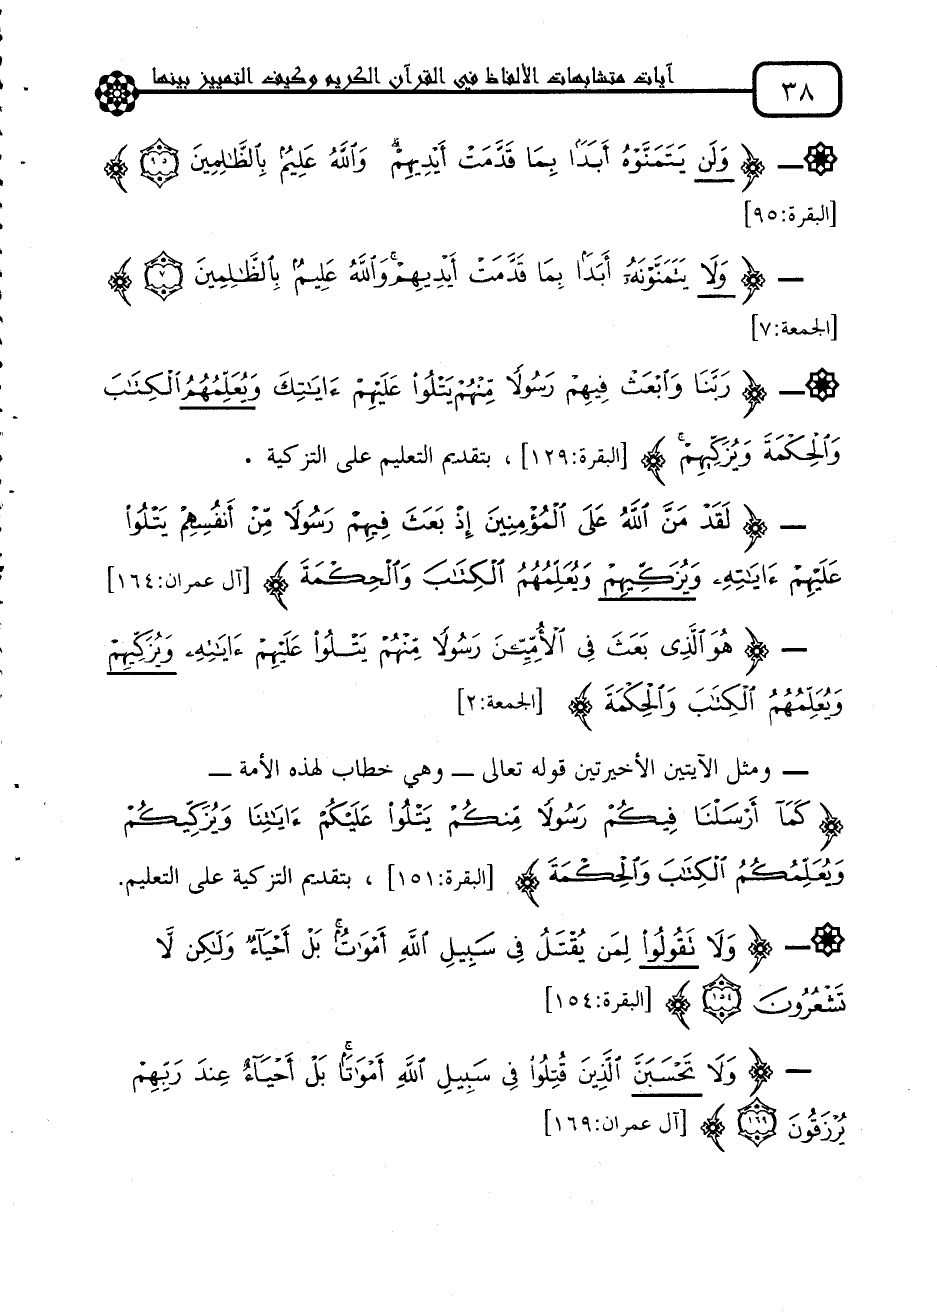 آيات متشابهات الألفاظ في القرآن الكريم وكيف التمييز بينها ٣٨
— ﴿ وَلَن يَتَمَنَّوْهُ أَبَدًۢا بِمَا قَدَّمَتْ أَيْدِيهِمْۗ وَٱللَّهُ عَلِيمٌۢ بِٱلظَّٰلِمِينَ ۝٩٥ ﴾
[البقرة:٩٥]
— ﴿ وَلَا يَتَمَنَّوْنَهُۥٓ أَبَدًۢا بِمَا قَدَّمَتْ أَيْدِيهِمْۚ وَٱللَّهُ عَلِيمٌۢ بِٱلظَّٰلِمِينَ ۝٧ ﴾
[الجمعة:٧]
— ﴿ رَبَّنَا وَٱبْعَثْ فِيهِمْ رَسُولًا مِّنْهُمْ يَتْلُوا۟ عَلَيْهِمْ ءَايَٰتِكَ وَيُعَلِّمُهُمُ ٱلْكِتَٰبَ
وَٱلْحِكْمَةَ وَيُزَكِّيهِمْۚ ﴾ [البقرة:١٢٩] ، بتقديم التعليم على التزكية .
— ﴿ لَقَدْ مَنَّ ٱللَّهُ عَلَى ٱلْمُؤْمِنِينَ إِذْ بَعَثَ فِيهِمْ رَسُولًا مِّنْ أَنفُسِهِمْ يَتْلُوا۟
عَلَيْهِمْ ءَايَٰتِهِۦ وَيُزَكِّيهِمْ وَيُعَلِّمُهُمُ ٱلْكِتَٰبَ وَٱلْحِكْمَةَ ﴾ [آل عمران:١٦٤]
— ﴿ هُوَ ٱلَّذِى بَعَثَ فِى ٱلْأُمِّيِّۦنَ رَسُولًا مِّنْهُمْ يَتْلُوا۟ عَلَيْهِمْ ءَايَٰتِهِۦ وَيُزَكِّيهِمْ
وَيُعَلِّمُهُمُ ٱلْكِتَٰبَ وَٱلْحِكْمَةَ ﴾ [الجمعة:٢]
— ومثل الآيتين الأخيرتين قوله تعالى — وهي خطاب لهذه الأمة —
﴿ كَمَآ أَرْسَلْنَا فِيكُمْ رَسُولًا مِّنكُمْ يَتْلُوا۟ عَلَيْكُمْ ءَايَٰتِنَا وَيُزَكِّيكُمْ
وَيُعَلِّمُكُمُ ٱلْكِتَٰبَ وَٱلْحِكْمَةَ ﴾ [البقرة:١٥١] ، بتقديم التزكية على التعليم.
— ﴿ وَلَا تَقُولُوا۟ لِمَن يُقْتَلُ فِى سَبِيلِ ٱللَّهِ أَمْوَٰتٌۢۚ بَلْ أَحْيَآءٌ وَلَٰكِن لَّا
تَشْعُرُونَ ۝١٥٤ ﴾ [البقرة:١٥٤]
— ﴿ وَلَا تَحْسَبَنَّ ٱلَّذِينَ قُتِلُوا۟ فِى سَبِيلِ ٱللَّهِ أَمْوَٰتًۢاۚ بَلْ أَحْيَآءٌ عِندَ رَبِّهِمْ
يُرْزَقُونَ ۝١٦٩ ﴾ [آل عمران:١٦٩]